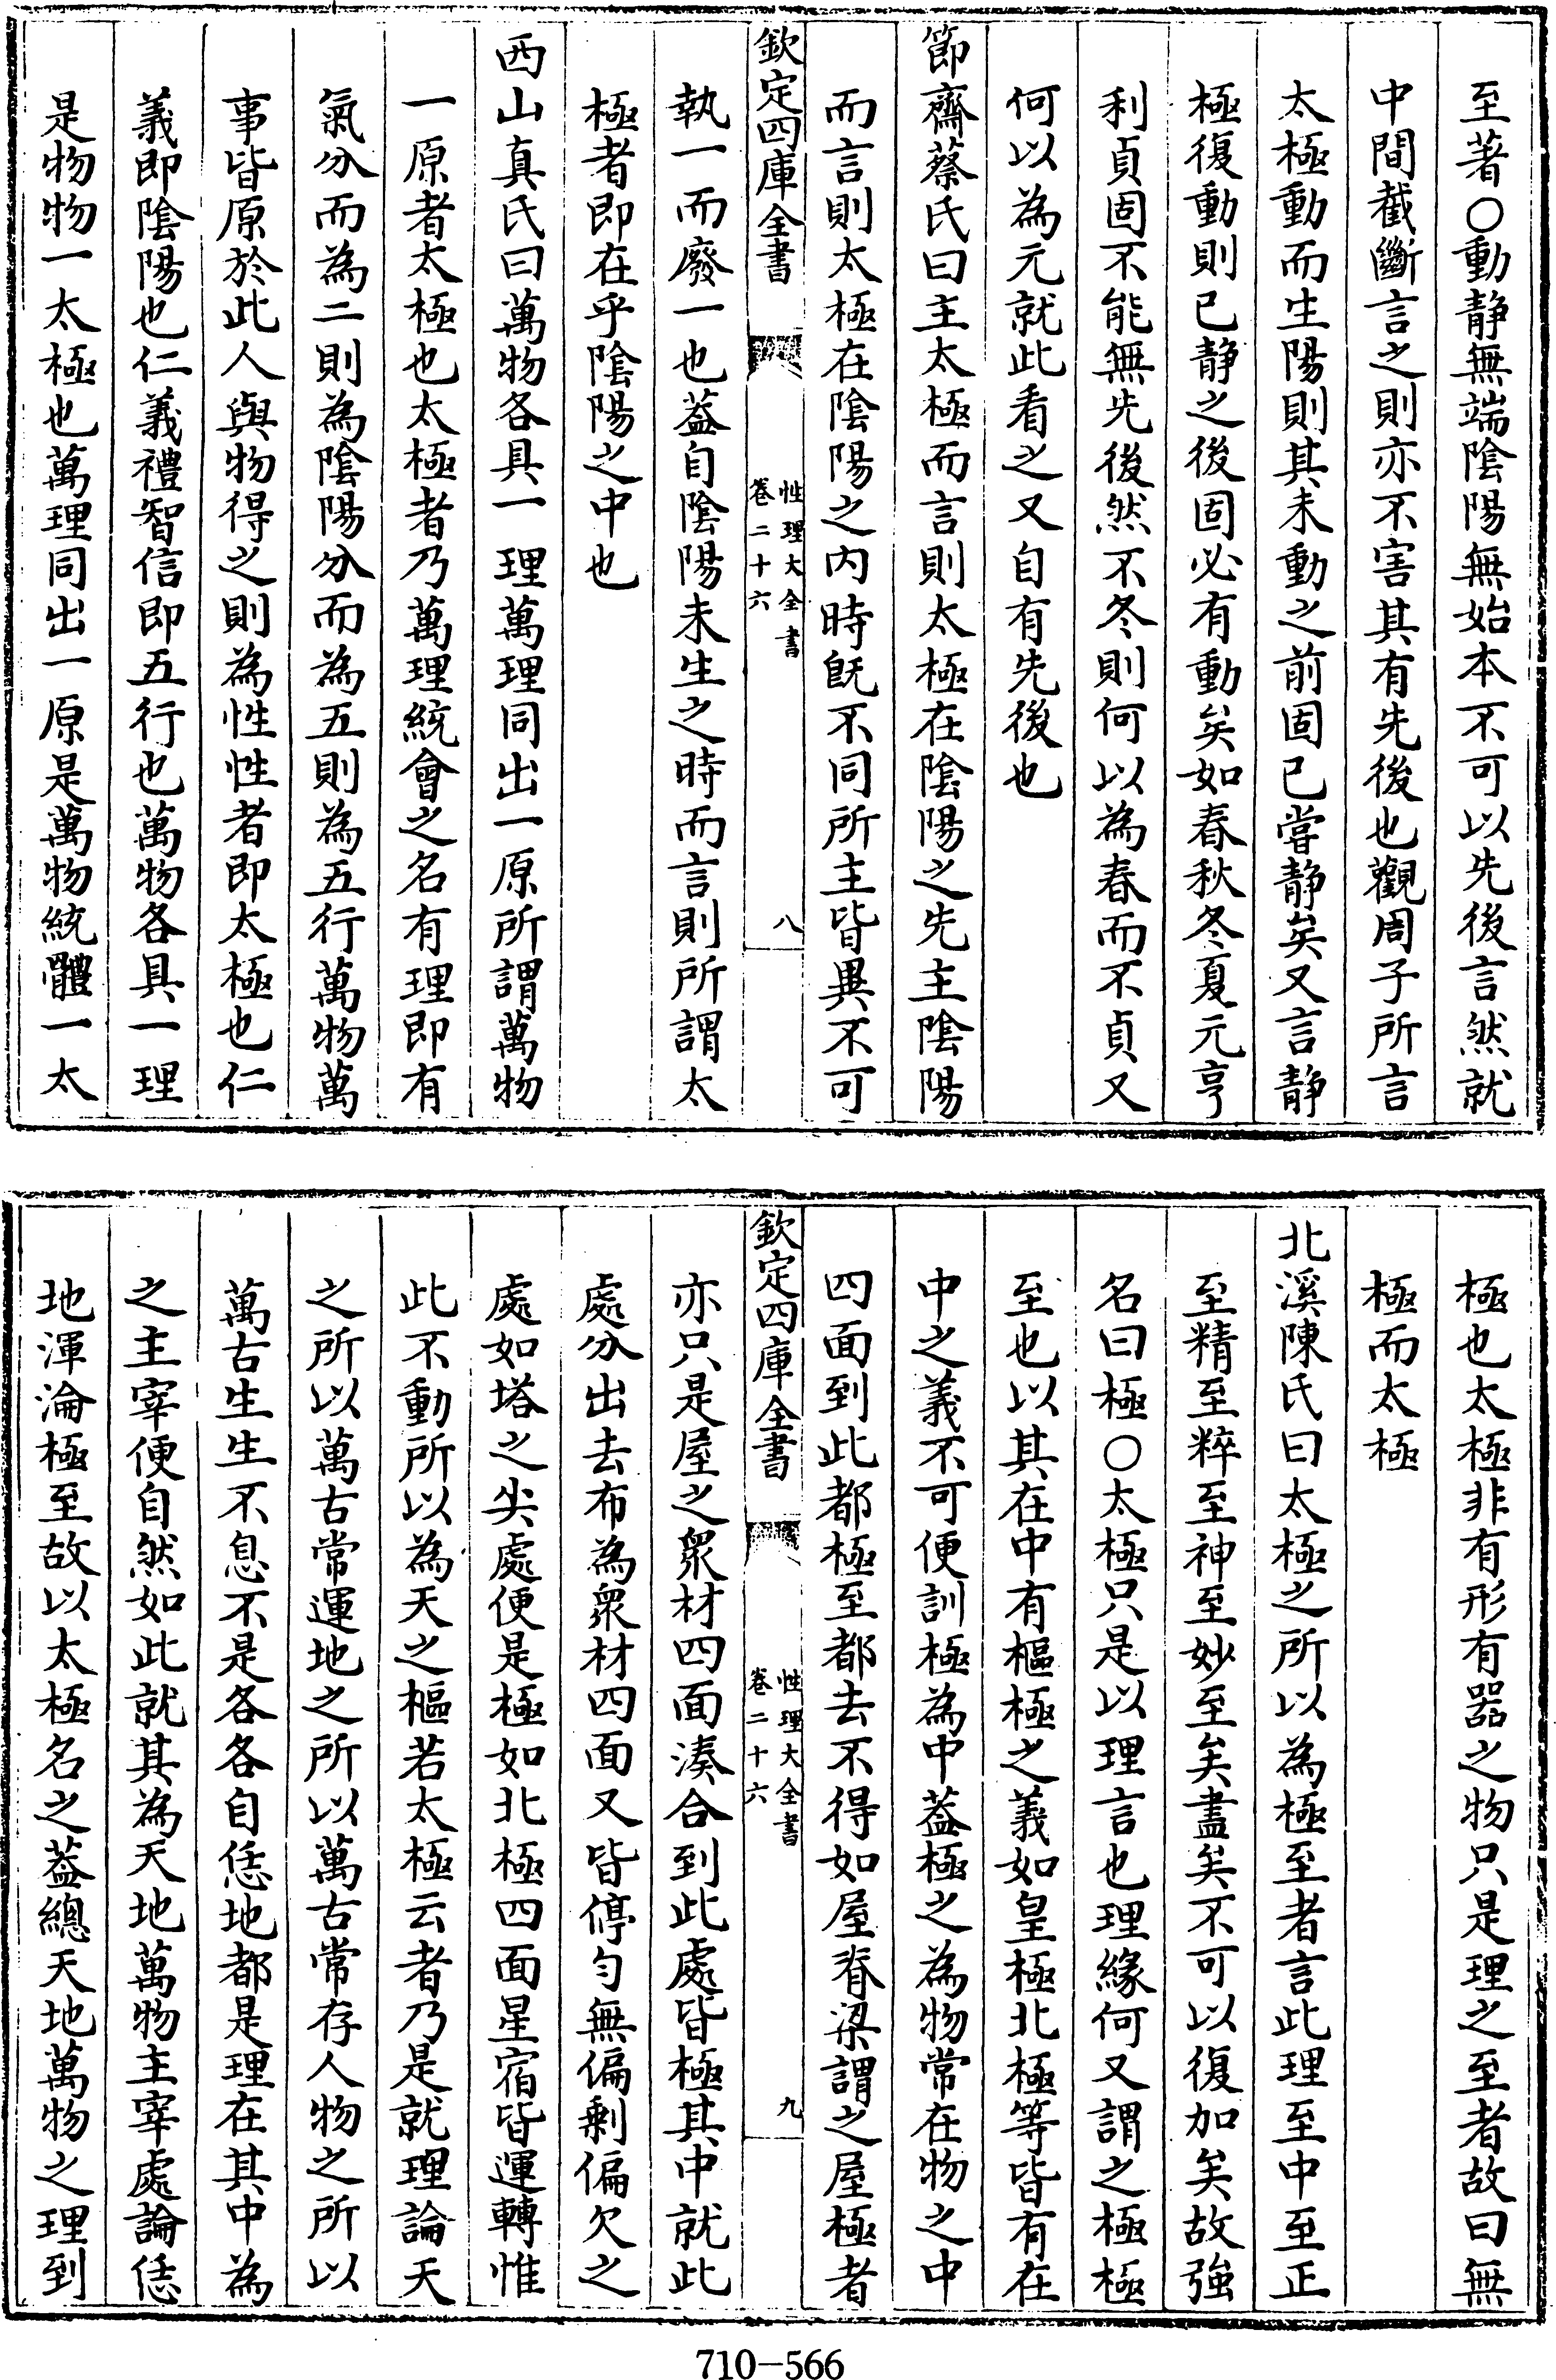 至著○動静無端陰陽無始本不可以先後言然就
中間截斷言之則亦不害其有先後也觀周子所言
太極動而生陽則其未動之前固已嘗静矣又言静
極復動則已静之後固必有動矣如春秋冬夏元亨
利貞固不能無先後然不冬則何以為春而不貞又
何以為元就此看之又自有先後也
節齋蔡氏曰主太極而言則太極在陰陽之先主陰陽
而言則太極在陰陽之内時既不同所主皆異不可
欽定四庫全書
性理大全書
卷二十六
八
執一而廢一也葢自陰陽未生之時而言則所謂太
極者即在乎陰陽之中也
西山真氏曰萬物各具一理萬理同出一原所謂萬物
一原者太極也太極者乃萬理統會之名有理即有
氣分而為二則為陰陽分而為五則為五行萬物萬
事皆原於此人與物得之則為性性者即太極也仁
義即陰陽也仁義禮智信即五行也萬物各具一理
是物物一太極也萬理同出一原是萬物統體一太
極也太極非有形有器之物只是理之至者故曰無
極而太極
北溪陳氏曰太極之所以為極至者言此理至中至正
至精至粹至神至妙至矣盡矣不可以復加矣故強
名曰極○太極只是以理言也理緣何又謂之極極
至也以其在中有樞極之義如皇極北極等皆有在
中之義不可便訓極為中葢極之為物常在物之中
四面到此都極至都去不得如屋脊梁謂之屋極者
欽定四庫全書
性理大全書
卷二十六
九
亦只是屋之衆材四面湊合到此處皆極其中就此
處分出去布為衆材四面又皆停匀無偏剩偏欠之
處如塔之尖處便是極如北極四面星宿皆運轉惟
此不動所以為天之樞若太極云者乃是就理論天
之所以萬古常運地之所以萬古常存人物之所以
萬古生生不息不是各各自恁地都是理在其中為
之主宰便自然如此就其為天地萬物主宰處論恁
地渾淪極至故以太極名之葢總天地萬物之理到
710-566